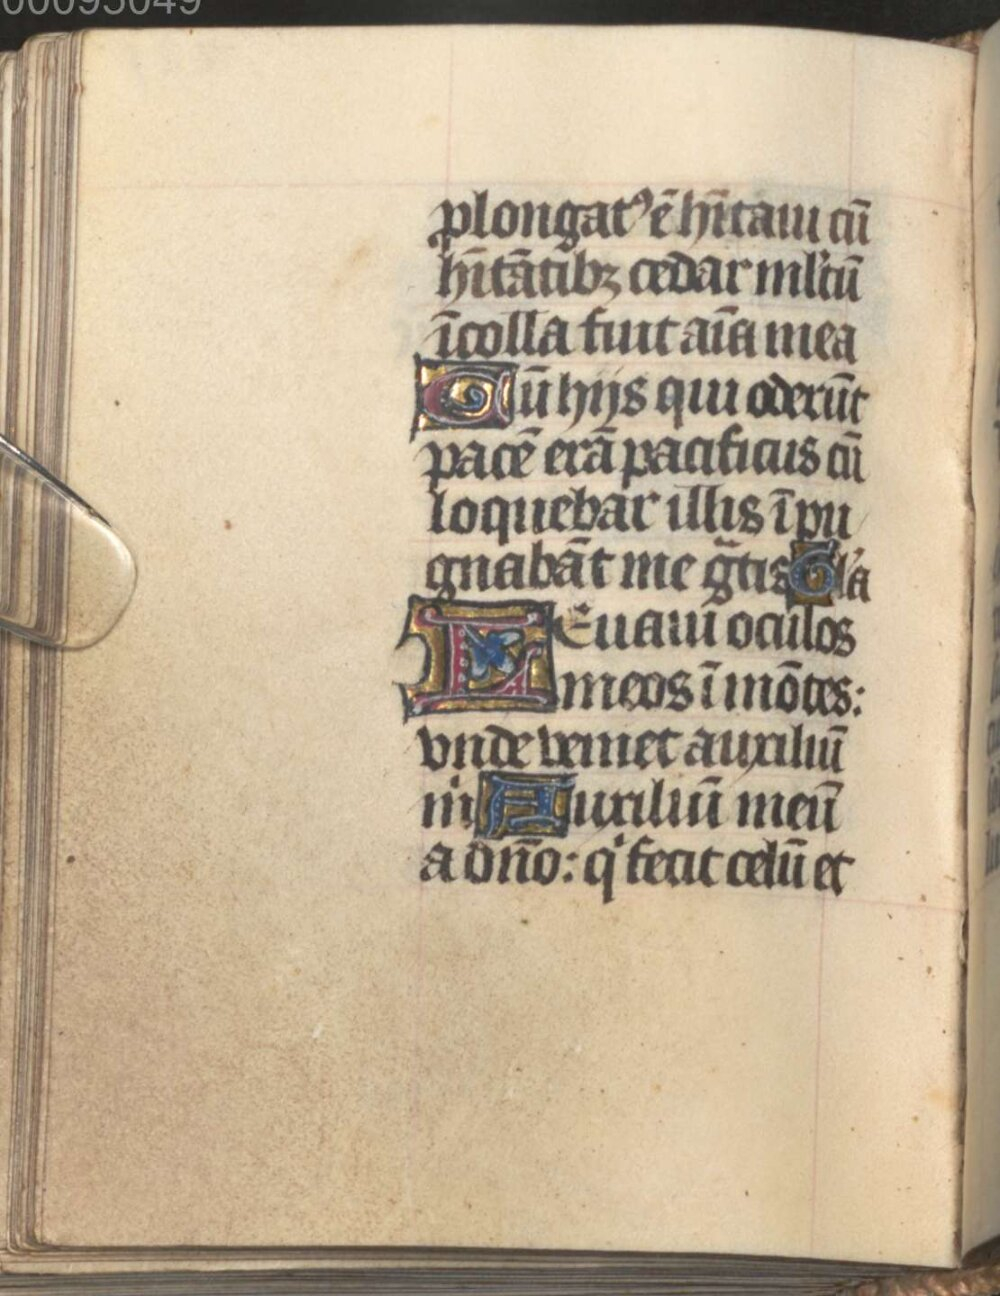 00095049
ꝓlongatꝰ ē hītaui cū
hītātibꝫ cedar ml̄tū
īcolla fuit aīa mea
Cū hijs qui oderūt
pacē erā pacificus cū
loquebar illis īpu
gnabāt me gͣtis Gl̄a
LEuaui oculos
meos ī mōtes:
vnde veniet auxiliū
mͥ Auxiliū meū
a dn̄o: qͥ fecit celū et